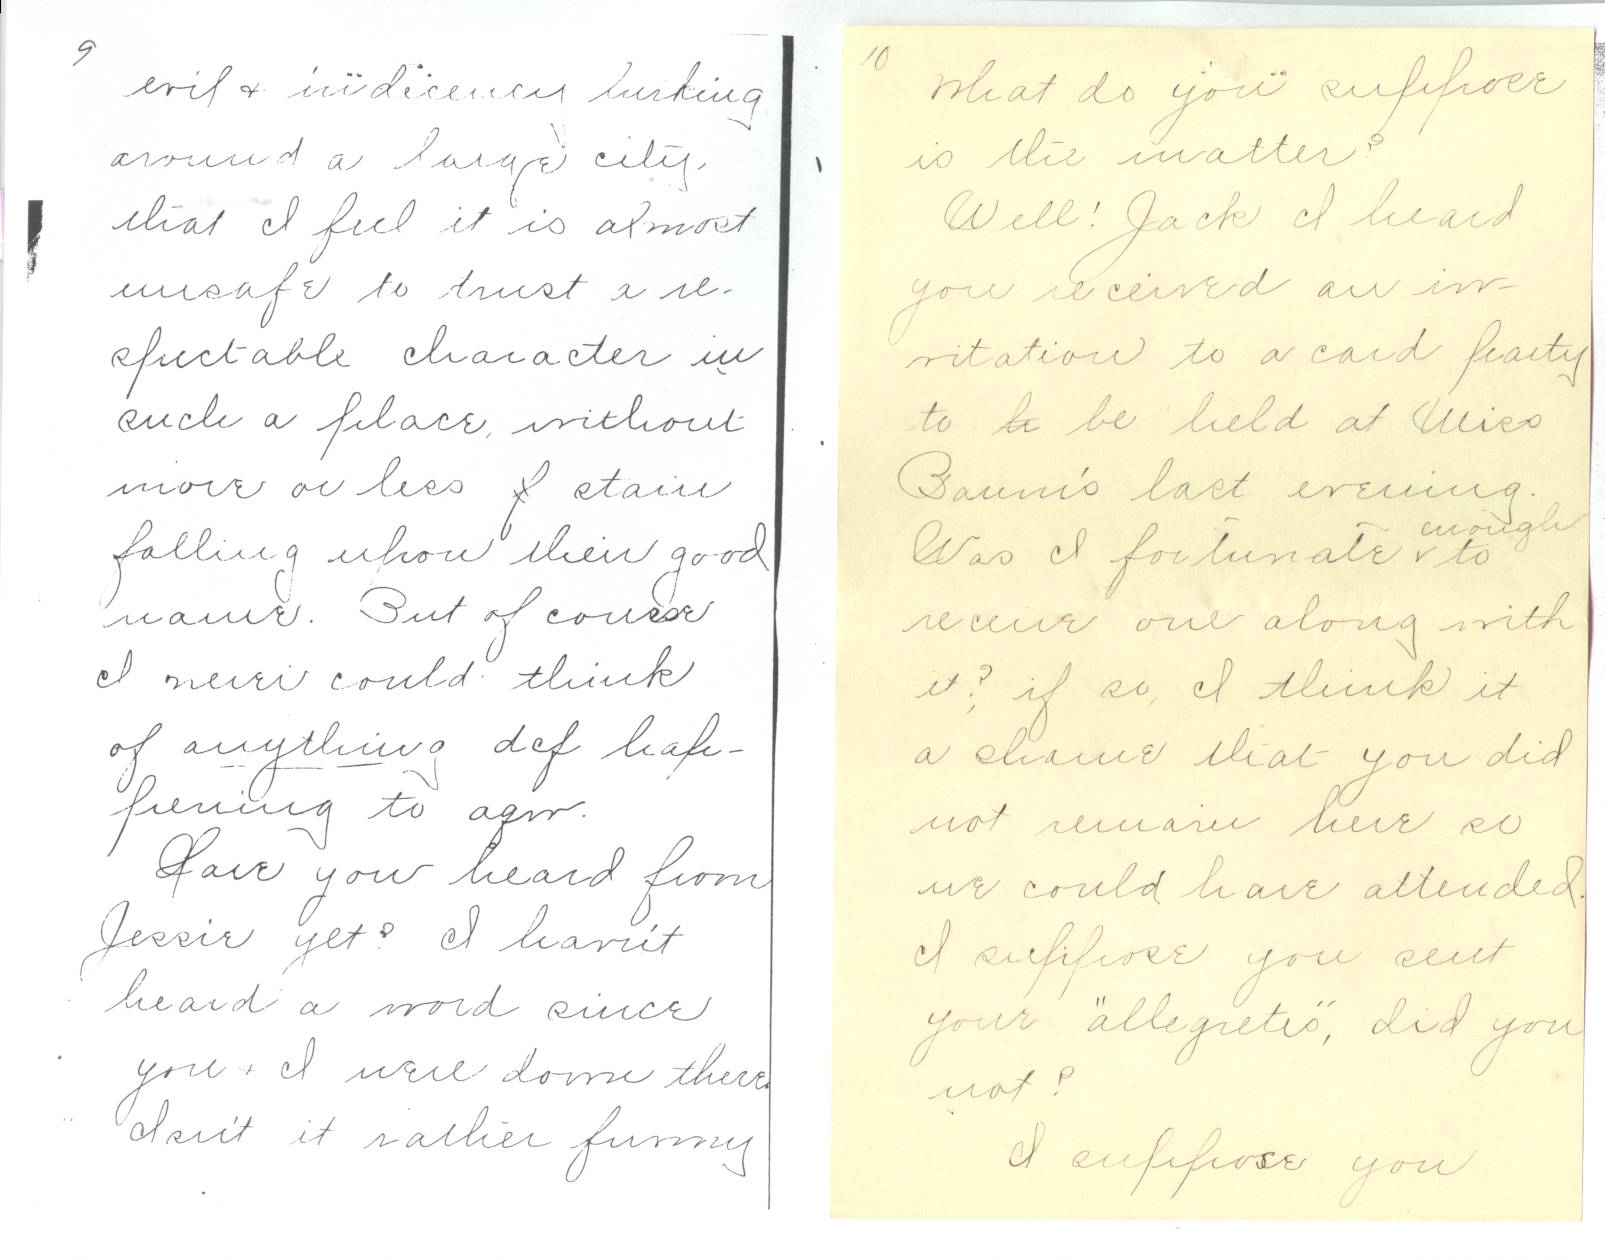 9
evil & indicency lurking
around a large city,
that I feel it is almost
unsafe to trust a re-
spectable character in
such a place, without
more or less stain
falling upon their good
name. But of course
I never could think
of anything def hap-
pening to agw.
Have you heard from
Jessie yet? I havn't
heard a word since
you & I were down there.
Isn't it rather funny
10
What do you suppose
is the matter?
Well! Jack I heard
you received an in-
vitation to a card party
to be be held at Miss
Baum's last evening.
Was I fortunate enough to
receive one along with
it? if so, I think it
a shame that you did
not remain here so
we could have attended.
I suppose you sent
your "allegrets", did you
not?
I suppose you